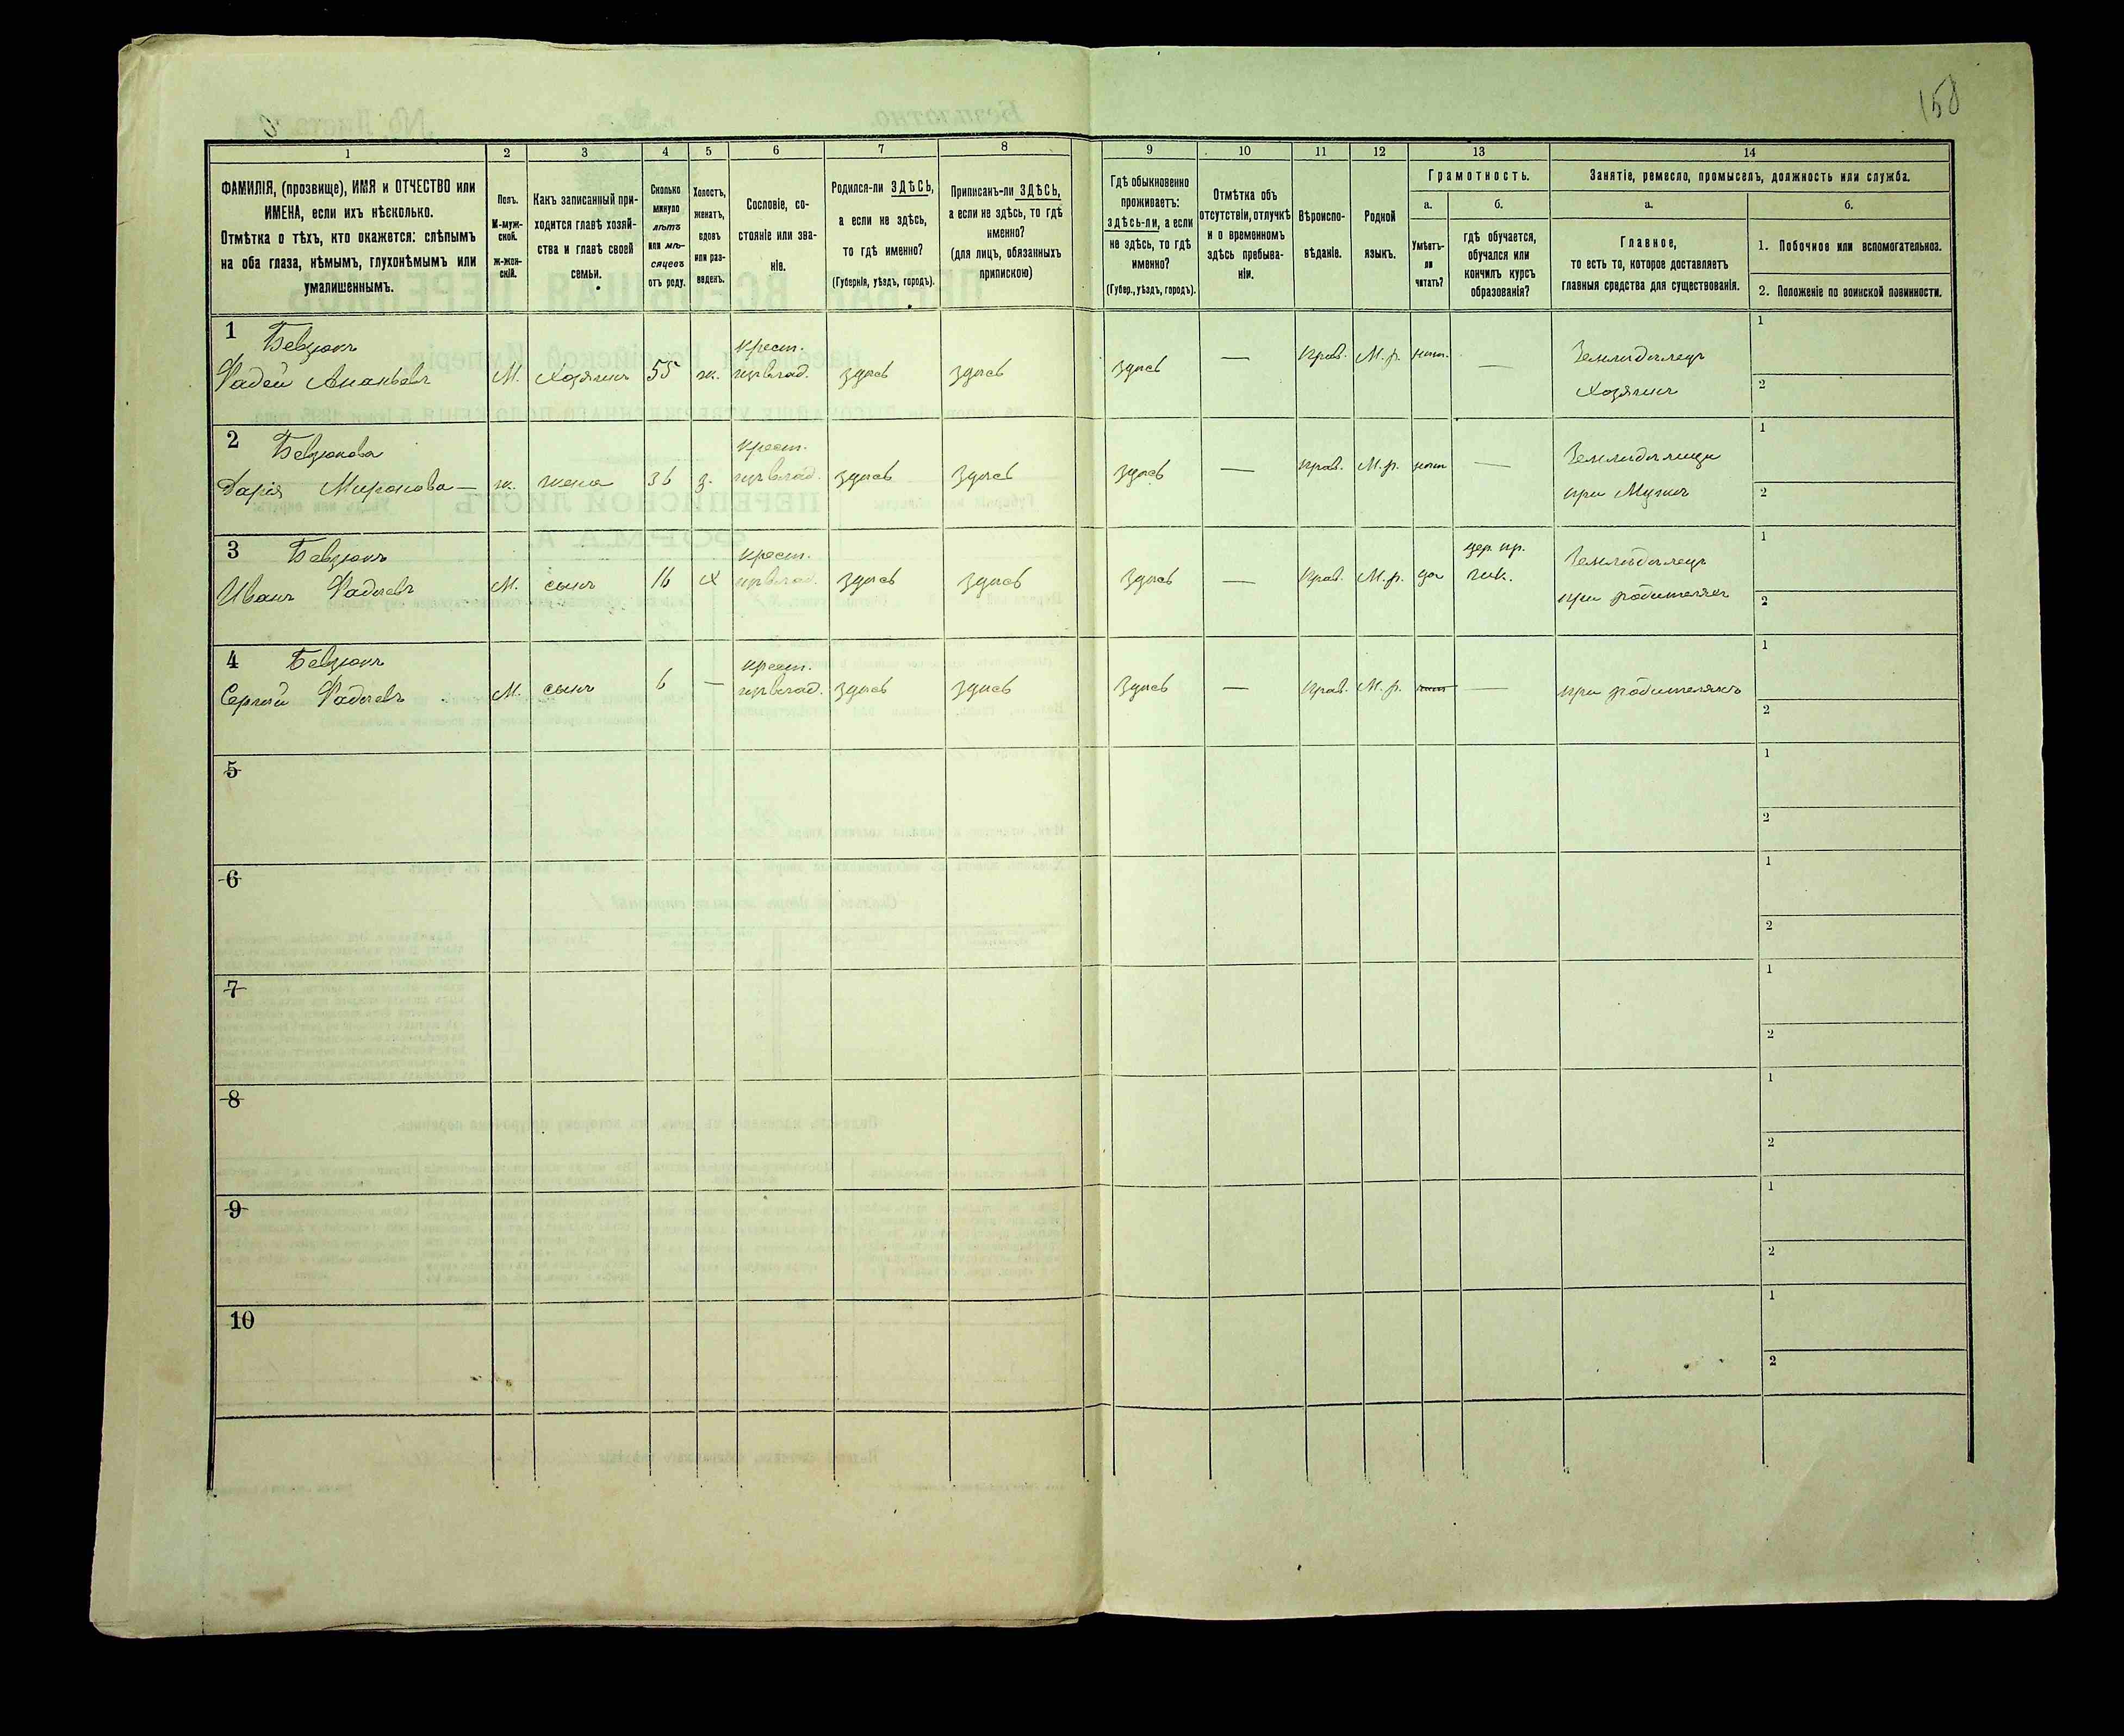 158
1 2 3 4 5 6 7 8 9 10 11 12 13 14
ФАМИЛІЯ, (прозвище), ИМЯ и ОТЧЕСТВО или
ИМЕНА, если ихъ нѣсколько.
Отмѣтка о тѣхъ, кто окажется: слѣпымъ
на оба глаза, нѣмымъ, глухонѣмымъ или
умалишеннымъ.
Полъ.
М-муж-
ской.
Ж-жен-
скій.
Какъ записанный при-
ходится главѣ хозяй-
ства и главѣ своей
семьи.
Сколько
минуло
лѣтъ
или мѣ-
сяцевъ
отъ роду.
Холостъ,
женатъ,
вдовъ
или раз-
веденъ.
Сословіе, со-
стояніе или зва-
ніе.
Родился-ли ЗДѢСЬ,
а если не здѣсь,
то гдѣ именно?
(Губернія, уѣздъ, городъ).
Приписанъ-ли ЗДѢСЬ,
а если не здѣсь, то гдѣ
именно?
(для лицъ, обязанныхъ
припискою)
Гдѣ обыкновенно
проживаетъ:
здѣсь-ли, а если
не здѣсь, то гдѣ
именно?
(Губер., уѣздъ, городъ).
Отмѣтка объ
отсутствіи, отлучкѣ
и о временномъ
здѣсь пребыва-
ніи.
Вѣроиспо-
вѣданіе.
Родной
языкъ.
Грамотность.
а.
Умѣетъ-
ли
читать?
б.
гдѣ обучается,
обучался или
кончилъ курсъ
образованія?
Занятіе, ремесло, промыселъ, должность или служба.
а.
Главное,
то есть то, которое доставляетъ
главныя средства для существованія.
б.
1. Побочное или вспомогательное.
2. Положеніе по воинской повинности.
1 Бевзюкъ крест. 1
Фадей Ананьевъ М. Хозяинъ 55 ж. здѣсь здѣсь здѣсь — прав. М.р. нѣтъ — Земледѣлецъ
Хозяинъ 2
2 Бевзюкова крест. 1
Дарія Миронова — ж. жена 36 з. здѣсь здѣсь здѣсь — прав. М.р. нѣтъ —
при Мужѣ 2
3 Бевзюкъ крест. цер. пр. 1
Иванъ Фадѣевъ М. сынъ 16 х здѣсь здѣсь здѣсь — прав. М.р. да шк. Земледѣлецъ
при родителяхъ 2
4 Бевзюкъ крест. 1
Сергѣй Фадѣевъ М. сынъ 6 — здѣсь здѣсь здѣсь — прав. М.р. — при родителяхъ
2
5 1
2
6 1
2
7 1
2
8 1
2
9 1
2
10 1
2